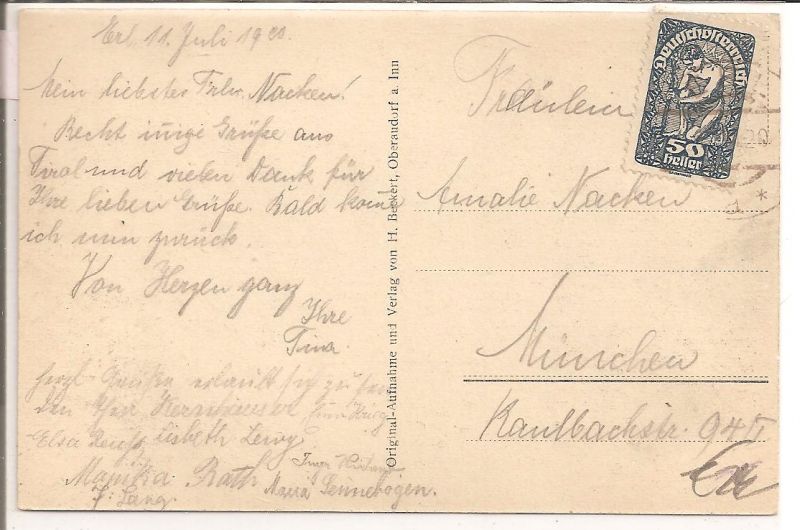 Erl, 11. Juli 19
Mein liebstes Frln. Nacken!
Recht innige Grüße aus
Tirol und vielen Dank für
Ihre lieben Grüße. Bald komm
ich nun zurück.
Von Herzen ganz
Ihre
Tina
herzl. Grüße erlaubt sich zu
den Ihre
Elsa Lisbeth Levy
Monika Rath
J. Lang. Maria Sennebogen.
Original-Aufnahme und Verlag von H. Beckert, Oberaudorf a. Inn
Deutschösterreich
50
heller
Fräulein
Amalie Nacken
München
Kaulbachstr. 94